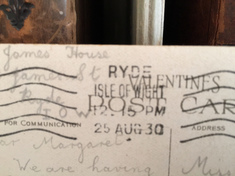 James House
James St
RYDE
Ryde
ISLE OF WIGHT
VALENTINES
I O W
12. 15 PM
POST CAR
FOR COMMUNICATION
25 AUG 30
ADDRESS
ar Margaret
Miss
We are having